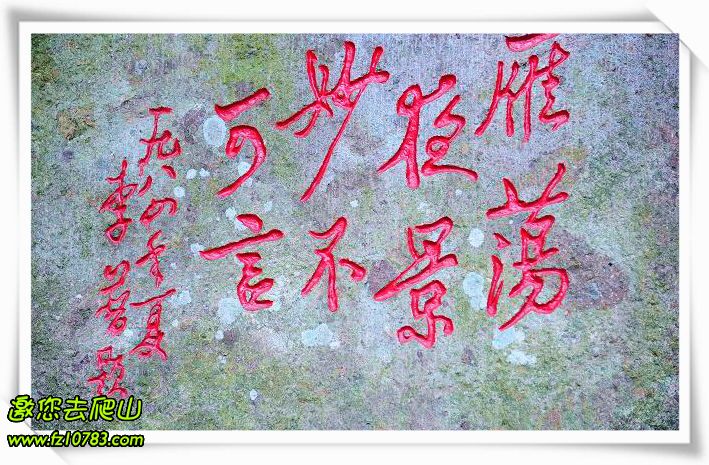 雁荡
夜景
妙不
可言
一九八四年夏
李普题
邀您去爬山
www.fz10783.com